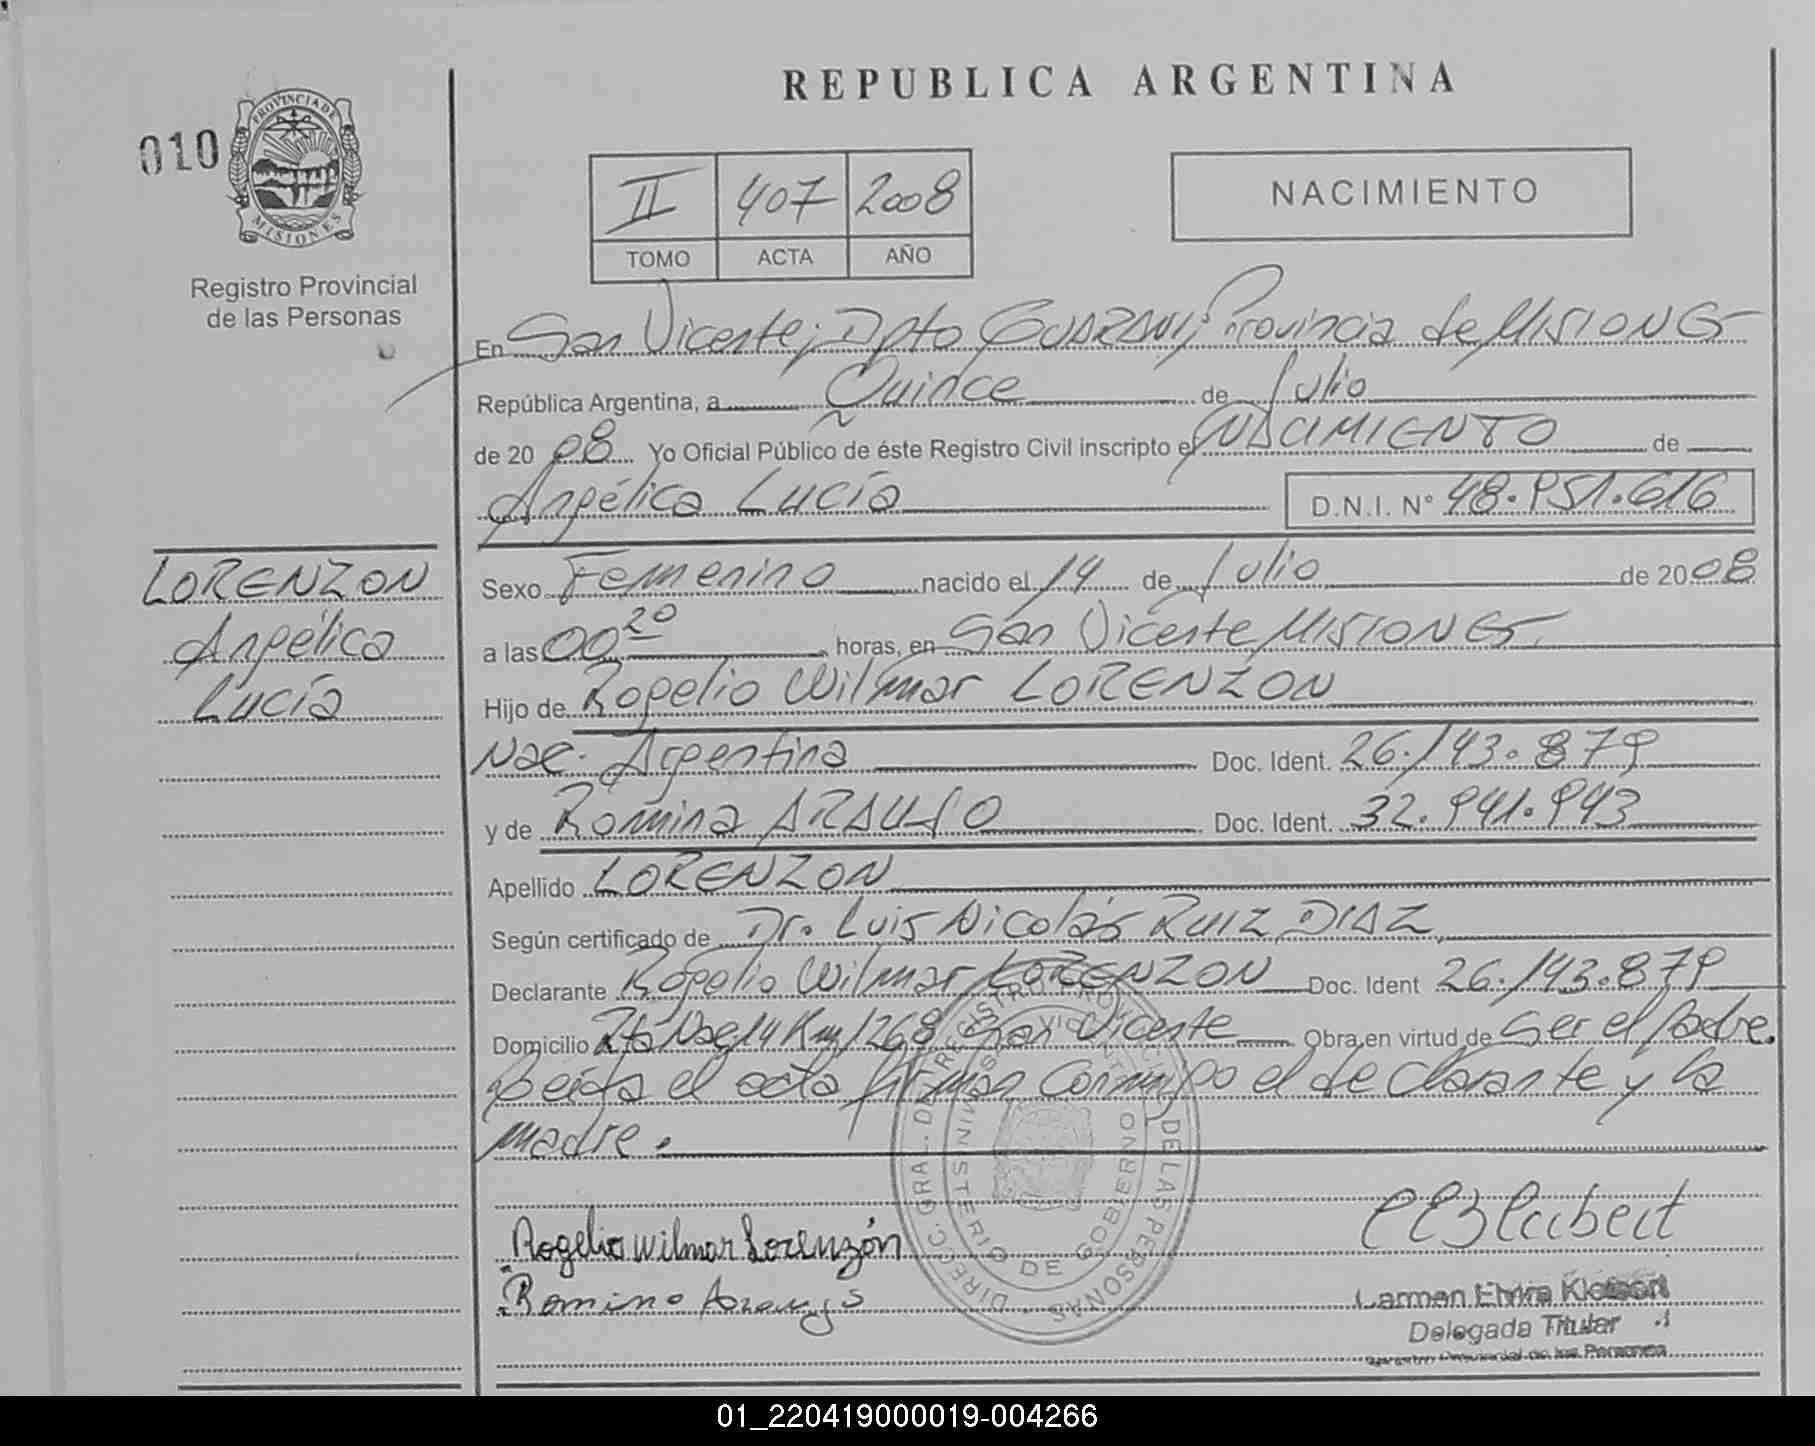 REPUBLICA ARGENTINA
010
PROVINCIA DE
MISIONES
Registro Provincial
de las Personas
II 407 2008
TOMO ACTA AÑO
NACIMIENTO
En San Vicente; Dpto GUARANI; Provincia de MISIONES
República Argentina, a Quince de Julio
de 2008 Yo Oficial Público de éste Registro Civil inscripto el NACIMIENTO de
Angélica Lucía D.N.I. N° 48.951.616
LORENZON
Angélica
Lucía
Sexo Femenino nacido el 14 de Julio de 2008
a las 00 20 horas, en San Vicente MISIONES.
Hijo de Rogelio Wilmar LORENZON
Nac. Argentina Doc. Ident. 26.143.879
y de Romina ARAUJO Doc. Ident. 32.941.943
Apellido LORENZON
Según certificado de Dr. Luis Nicolás RUIZ DIAZ,
Declarante Rogelio Wilmar LORENZON Doc. Ident 26.143.879
Domicilio Rta Nac 14 Km 1268 San Vicente Obra en virtud de Ser el padre.
Leída el acta firman conmigo el declarante y la
madre.
DIRECC. GRAL. DEL REGISTRO DE LAS PERSONAS
MINISTERIO DE GOBIERNO
Rogelio Wilmar Lorenzón
Romina Araujo
Carmen Elvira
Delegada Titular
Registro Provincial de las Personas
01_220419000019-004266